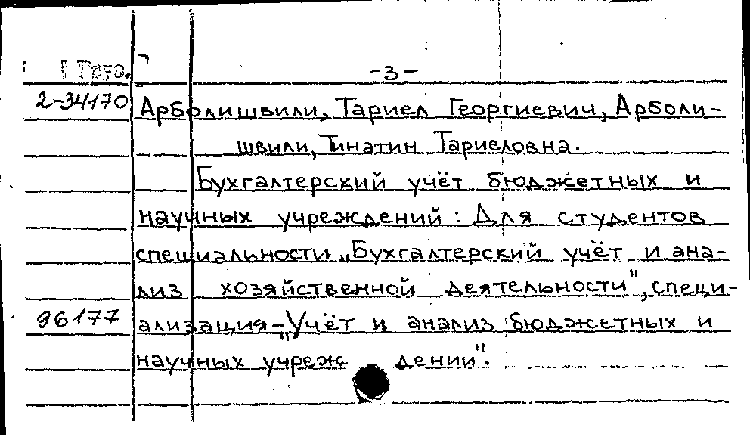 -3-
2-34170 Арболишвили, Тариел Георгиевич, Арболи-
швили, Тинатин Тариеловна.
Бухгалтерский учёт бюджетных и
научных учреждений: Для студентов
специальности „Бухгалтерский учёт и ана-
лиз хозяйственной деятельности", специ-
96177 ализация-„Учёт и анализ бюджетных и
научных учреж дений".